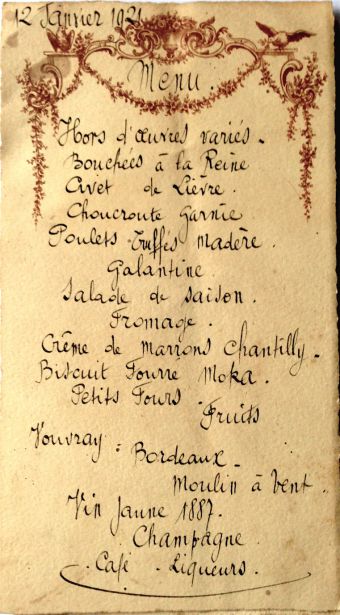 12 Janvier 1921
Menu.
Hors d'œuvres variés.
Bouchées à la Reine
Civet de Lièvre.
Choucroute Garnie
Poulets Truffés Madère.
Galantine
Salade de saison.
Fromage.
Crème de Marrons Chantilly.
Biscuit Fourré Moka.
Petits Fours - Fruits
Vouvray - Bordeaux -
Moulin à Vent.
Vin Jaune 1887.
Champagne
Café - Liqueurs.